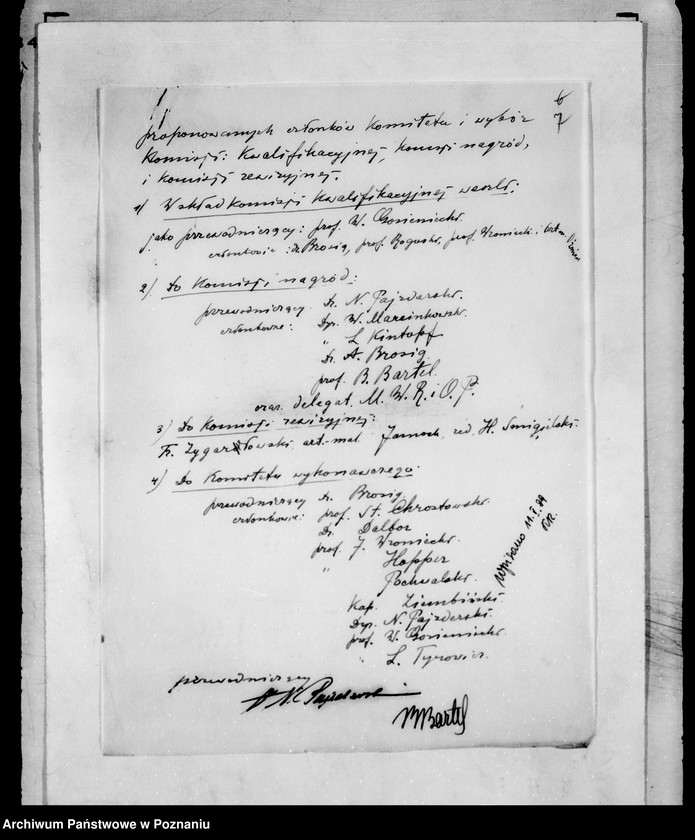 6
7
proponowanych członków Komitetu i wybór
Komisji: Kwalifikacyjnej, Komisji nagród,
i Komisji rewizyjnej.
1) W skład Komisji Kwalifikacyjnej weszli:
jako przewodniczący: prof. W. Gosieniecki
członkowie: dr. Brosig, prof. Roguski, prof. Wroniecki i
2) Do Komisji nagród:
przewodniczący Dr. N. Pajzderski.
członkowie: Dyr. W. Marcinkowski.
" L. Kintopf
Dr. A. Brosig
prof. B. Bartel.
oraz delegat M. W. R. i O. P.
3) Do Komisji rewizyjnej:
Fr. Zygarłowski, art.-mal. Jamoch, red. H. Śmigielski.
4) Do Komitetu wykonawczego.
przewodniczący dr. Brosig
członkowie: prof. St. Chrostowski.
Dr. Dalbor
prof. J. Wroniecki.
" Hopper
Pochwalski.
Kap. Ziembiński.
Dyr. N. Pajzderski.
prof. W. Gosieniecki.
" L. Tyrowicz.
Wpisano 11.I.39
przewodniczący
Dr N. Pajzderski
B Bartel
Archiwum Państwowe w Poznaniu